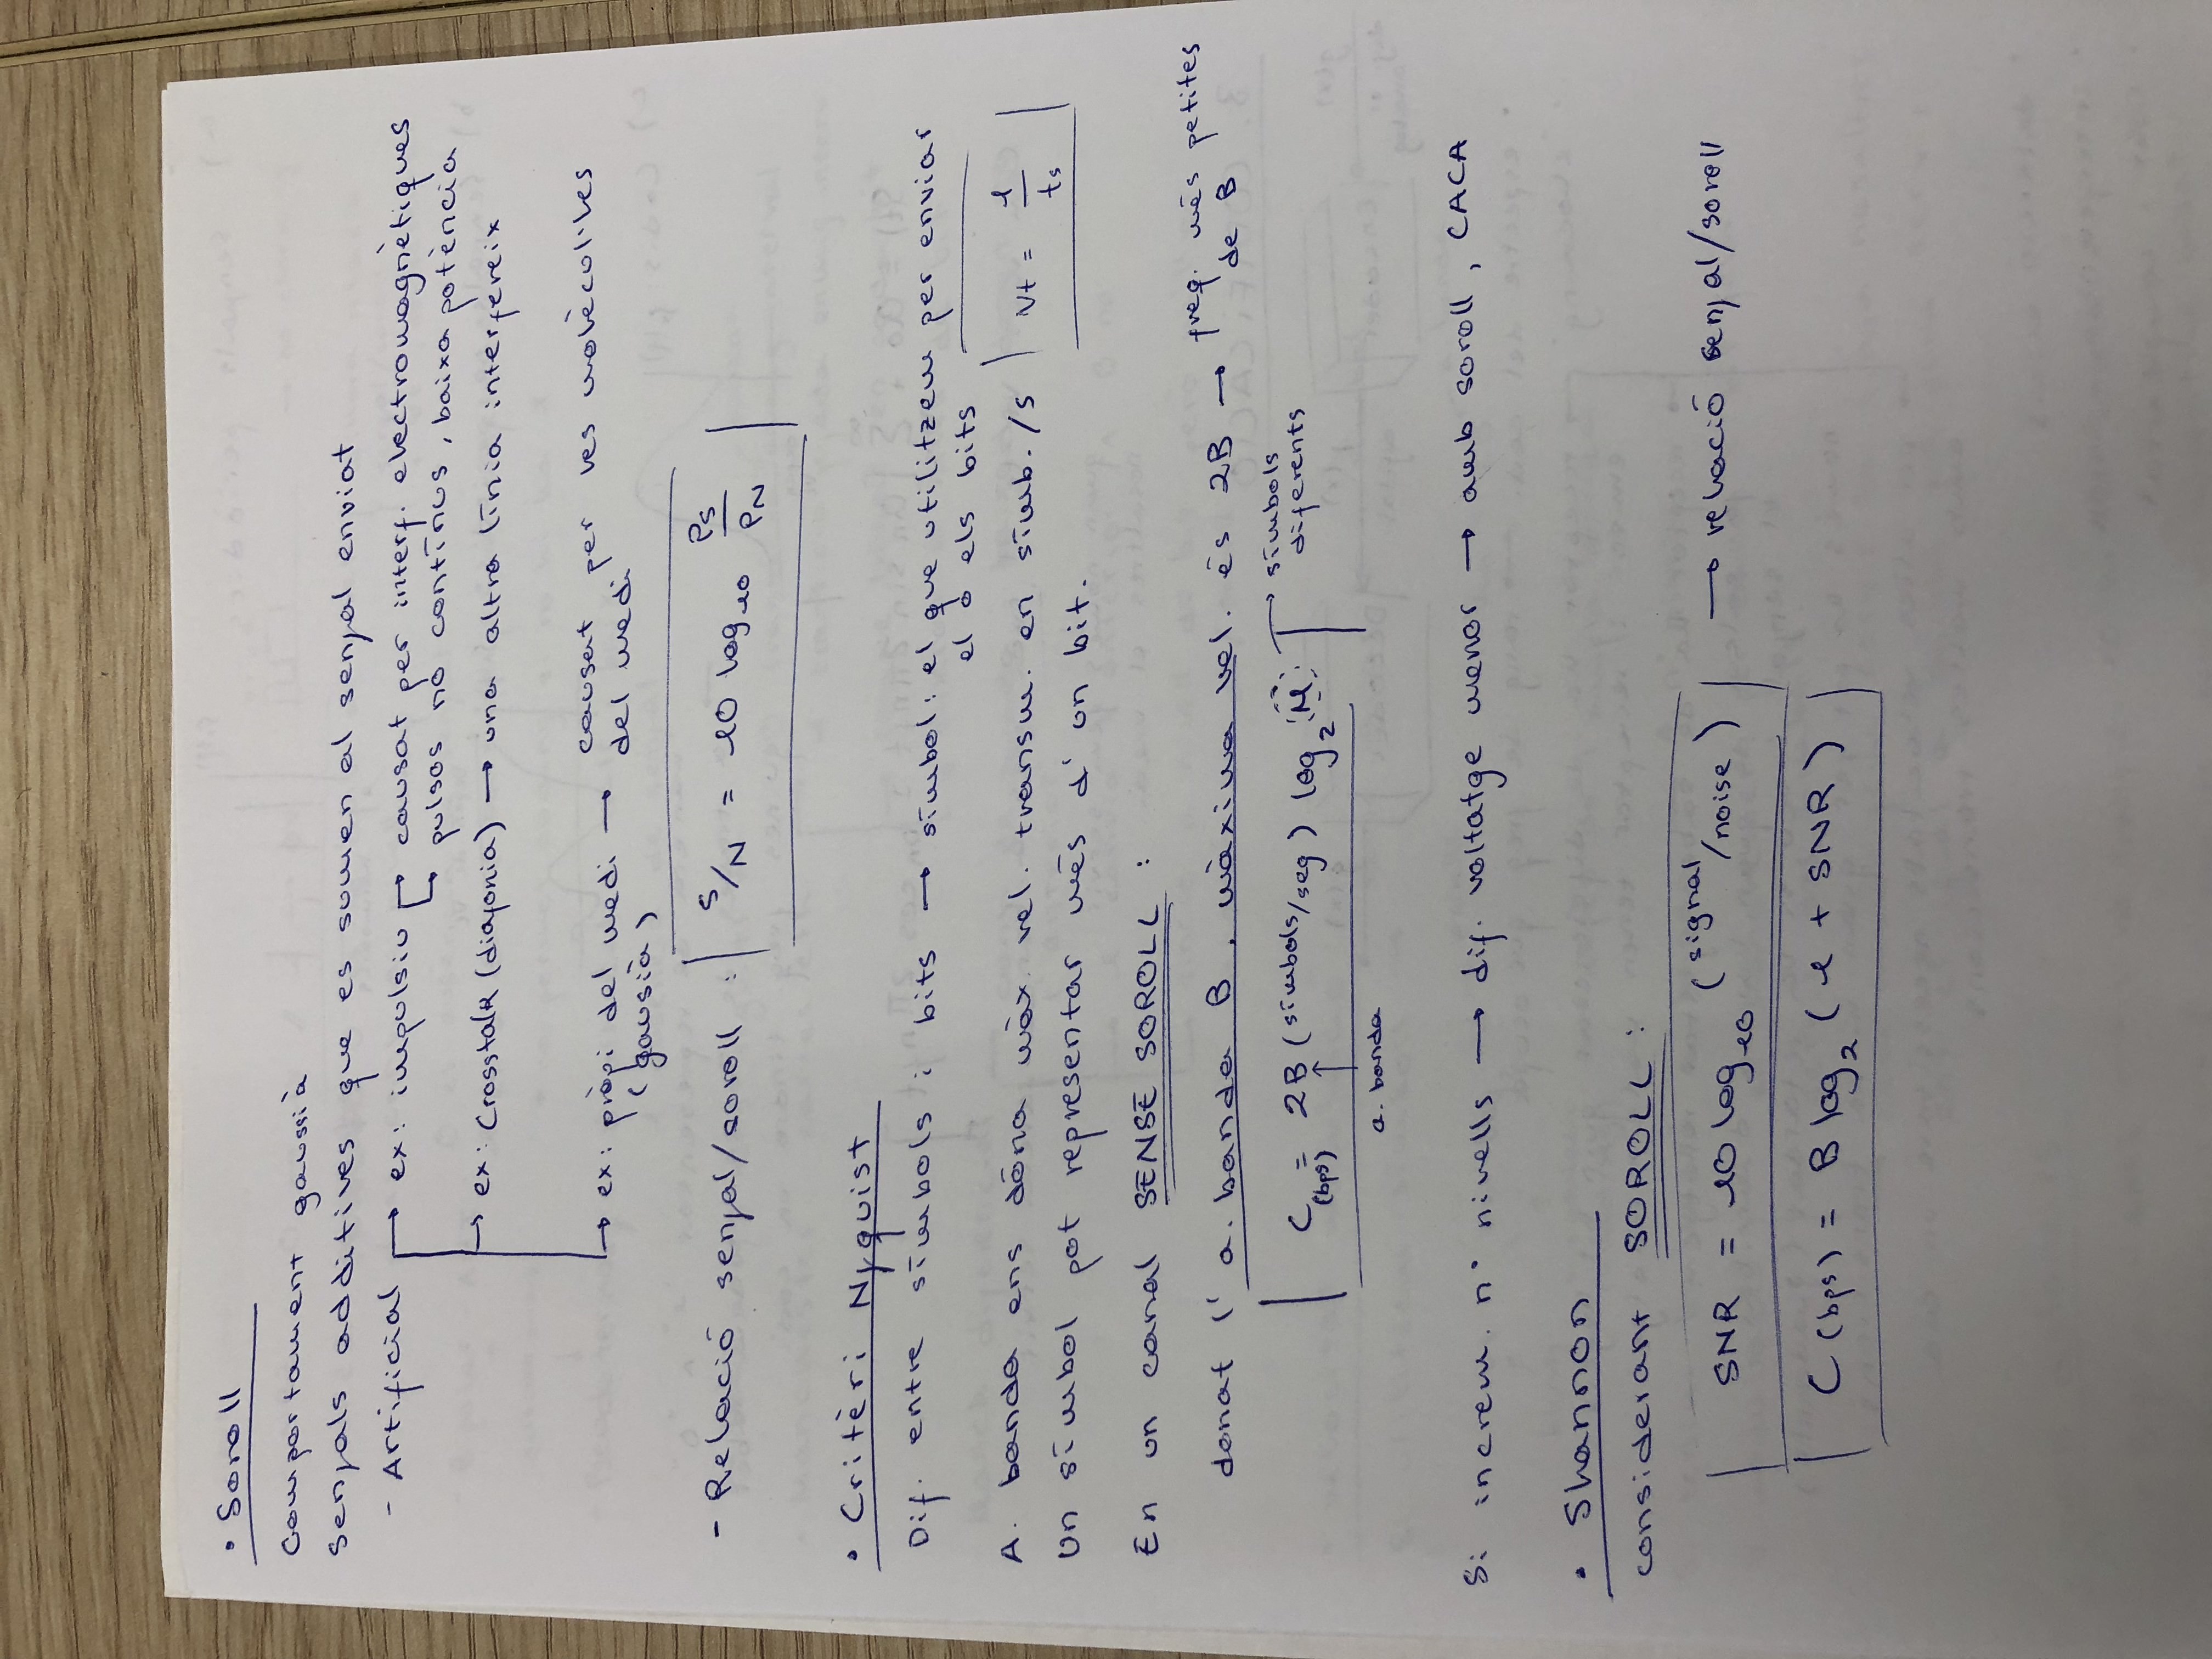 • Soroll
Comportament gaussià
Senyals additives que es sumen al senyal enviat
- Artificial → ex: impulsiu → causat per interf. electromagnètiques
→ pulsos no contínus, baixa potència
→ ex: Crosstalk (diafonia) → una altra línia interfereix
→ ex: pròpi del medi → causat per les molècul·les
(gausià) del medi
- Relació senyal/soroll : S/N = 10 log₁₀ PS/PN
• Critèri Nyquist
Dif. entre símbols i bits → símbol: el que utilitzem per enviar
el o els bits
A. banda ens dóna màx. vel. transm. en símb./s Vt = 1/ts
Un símbol pot representar més d'un bit.
En un canal SENSE SOROLL :
donat l'a. banda B, màxima vel. és 2B → freq. més petites
de B
C(bps) = 2B (símbols/seg) log₂ M → símbols
diferents
a. banda
Si increm. nº nivells → dif. voltatge menor → amb soroll, CACA
• Shannon
considerant SOROLL :
SNR = 10 log₁₀ (signal/noise) → relació senyal/soroll
C (bps) = B log₂ (1 + SNR)